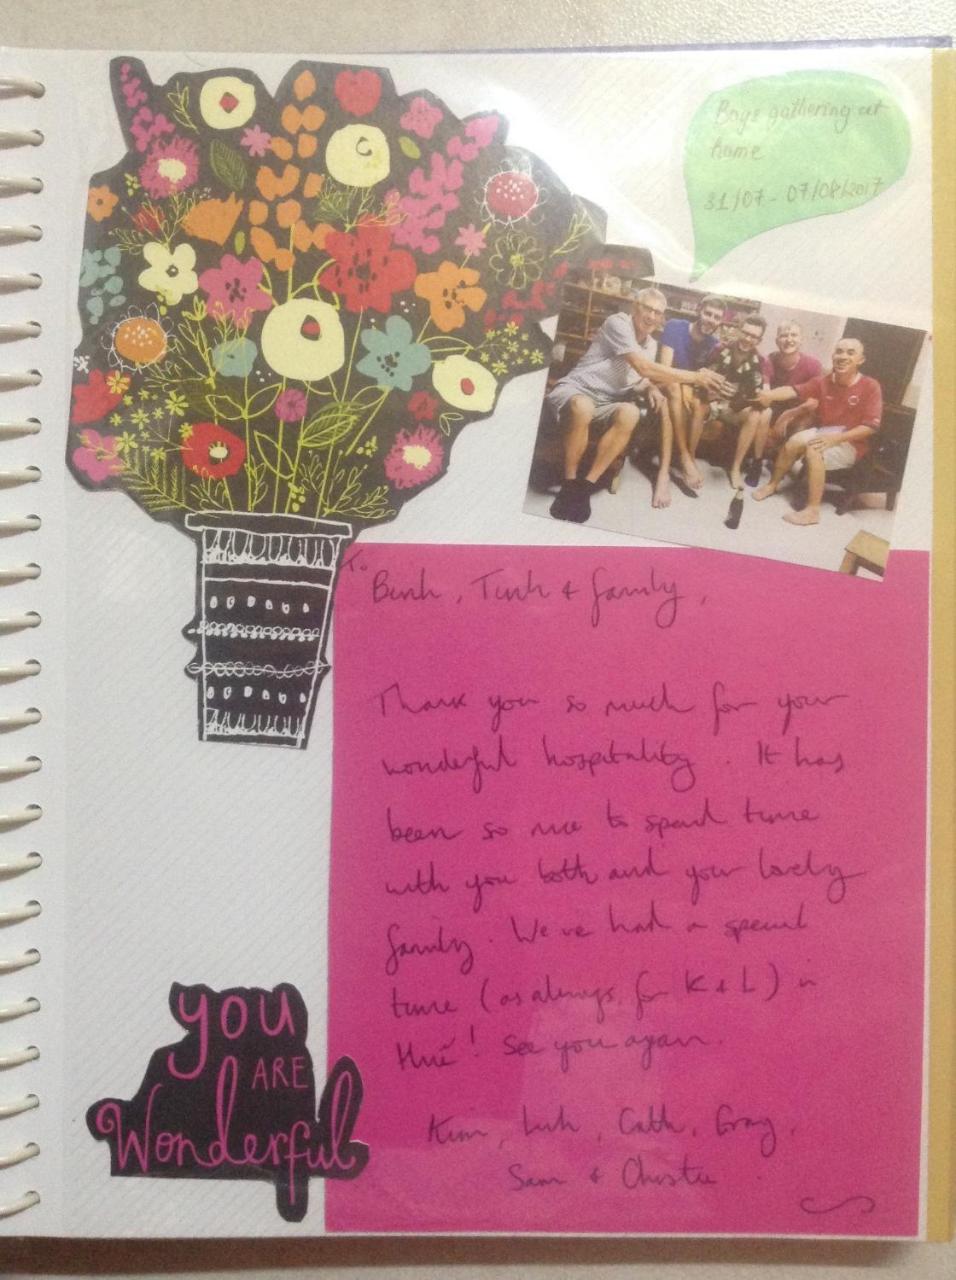 Boys gathering at
home
31/07 - 07/08/2017
To
Binh, Tinh & family,
Thank you so much for your
wonderful hospitality. It has
been so nice to spend time
with you both and your lovely
family. We've had a special
time (as always, for K & L) in
Hué! See you again.
Kim, Luh, Cath, Gray,
Sam & Christie
you
ARE
Wonderful